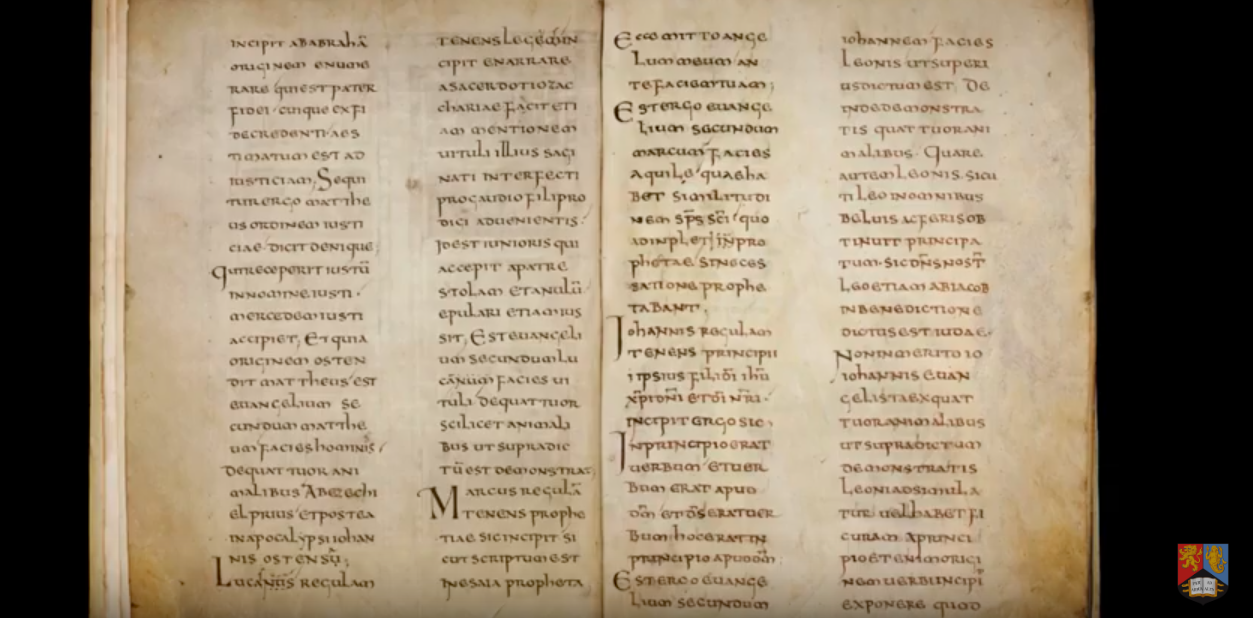 INCIPIT ABABRAHĀ
ORIGINEM ENUME
RARE QUI EST PATER
FIDEI · CUIQUE EX FI
DE CREDENTI AES
TIMATUM EST AD
IUSTICIAM; SEQUI
TUR ERGO MATTHE
US ORDINEM IUSTI
CIAE DICIT DENIQUE;
QUI RECEPERIT IUSTŪ
IN NOMINE IUSTI ·
MERCEDEM IUSTI
ACCIPIET; ET QUIA
ORIGINEM OSTEN
DIT MATTHEUS EST
EUANGELIUM SE
CUNDUM MATTHE
UM FACIES HOMINIS;
DE QUATTUOR ANI
MALIBUS AB EZECHI
EL PRIUS ET POSTEA
IN APOCALYPSI IOHAN
NIS OSTENSŪ;
LUCANUS REGULAM
TENENS LEGEM IN
CIPIT ENARRARE
A SACERDOTIO ZAC
CHARIAE FACIT ETI
AM MENTIONEM
UITULI ILLIUS SAGI
NATI INTERFECTI
PRO GAUDIO FILI PRO
DICI ADUENIENTIS:
IDEST IUNIORIS QUI
ACCEPIT A PATRE
STOLAM ET ANULŪ
EPULARI ETIAM IUS
SIT; EST EUANGELI
UM SECUNDUM LU
CANUM FACIES UI
TULI DE QUATTUOR
SCILICET ANIMALI
BUS UT SUPRADIC
TŪ EST DEMONSTRAT;
MARCUS REGULĀ
TENENS PROPHE
TIAE SIC INCIPIT SI
CUT SCRIPTUM EST
IN ESAIA PROPHETA
ECCE MITTO ANGE
LUM MEUM AN
TE FACIEM TUAM;
EST ERGO EUANGE
LIUM SECUNDUM
MARCUM FACIES
AQUILE QUAE HA
BET SIMILITUDI
NEM SPS SCI QUO
ADINPLETI IN PRO
PHETAE SINE CES
SATIONE PROPHE
TABANT;
IOHANNIS REGULAM
TENENS PRINCIPII
IPSIUS FILI DI IHU
XPI DNI ET DI NRI ·
INCIPIT ERGO SIC;
IN PRINCIPIO ERAT
UERBUM ET UER
BUM ERAT APUD
DM ET DS ERAT UER
BUM HOC ERAT IN
PRINCIPIO APUD DM;
EST ERGO EUANGE
LIUM SECUNDUM
IOHANNEM FACIES
LEONIS UT SUPERI
US DICTUM EST; DE
INDE DEMONSTRA
TIS QUATTUOR ANI
MALIBUS · QUARE
AUTEM LEONIS. SICU
TI LEO IN OMNIBUS
BELUIS AC FERIS OB
TINUIT PRINCIPA
TUM · SIC DNS NOST
LEO ETIAM AB IACOB
IN BENEDICTIONE
DICTUS EST IUDAE ·
NON INMERITO IO
IOHANNIS EUAN
GELISTA EX QUAT
TUOR ANIMALIBUS
UT SUPRA DICTUM
DEMONSTRATIS
LEONI ADSIMILA
TUR UEL HABET FI
GURAM A PRINCI
PIO ET ENIM ORIGI
NEM UERBI INCIPI
EXPONERE QUOD